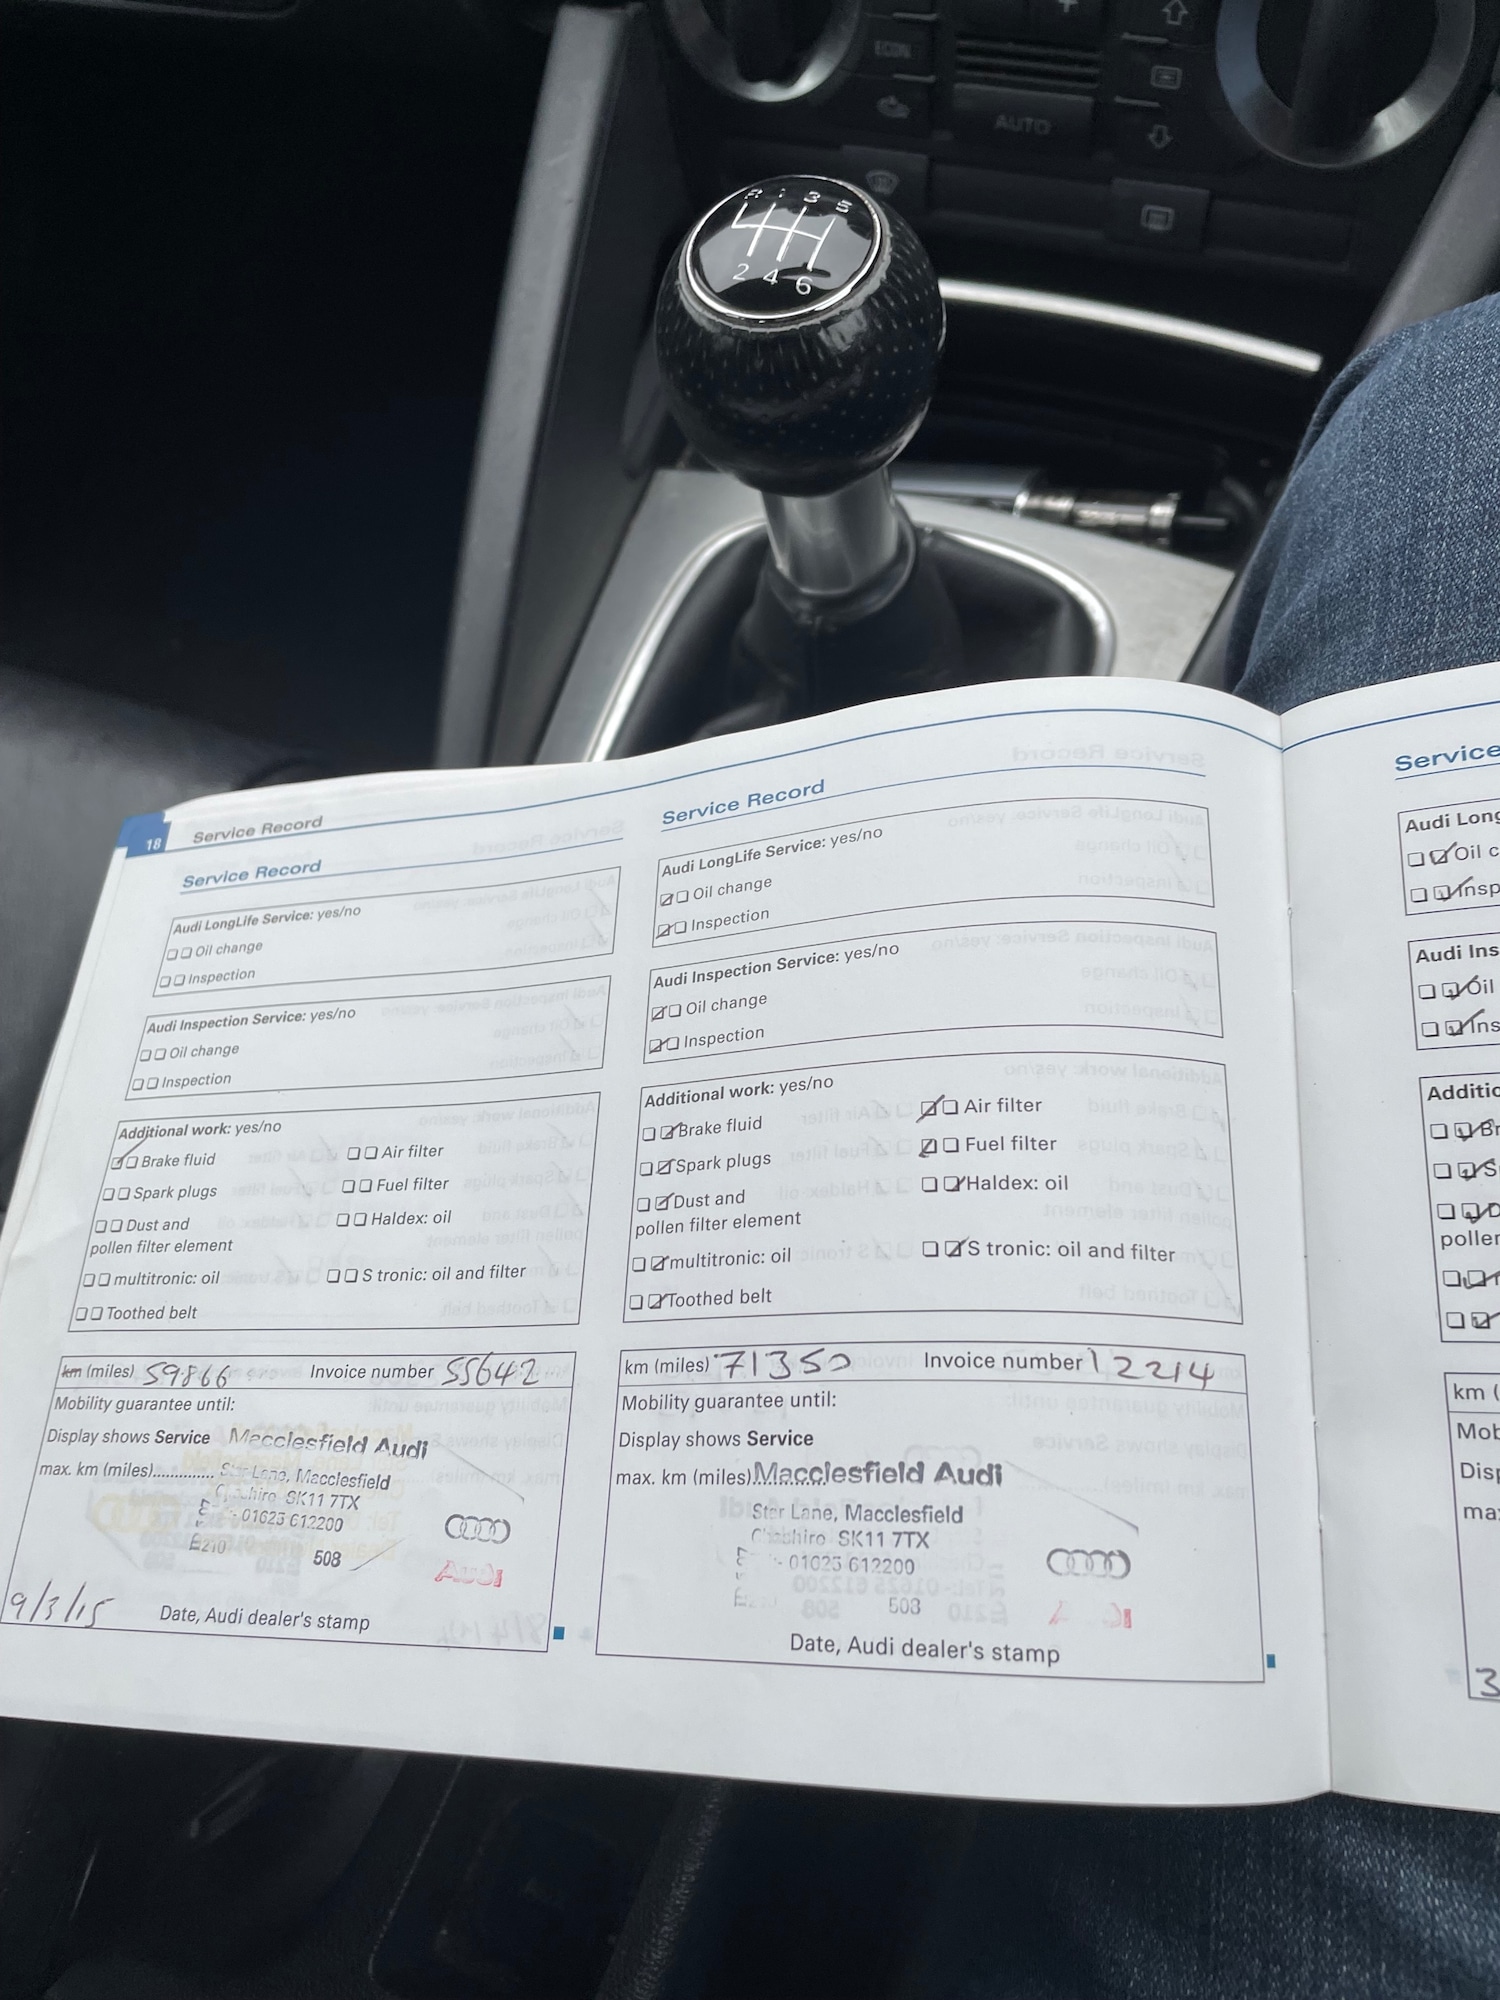 ECON
AUTO
R 1 3 5
2 4 6
18
Service Record
Service Record
Audi LongLife Service: yes/no
Oil change
Inspection
Audi Inspection Service: yes/no
Oil change
Inspection
Additional work: yes/no
Brake fluid
Air filter
Spark plugs
Fuel filter
Dust and
Haldex: oil
pollen filter element
multitronic: oil
S tronic: oil and filter
Toothed belt
km (miles) 59866 Invoice number 55642
Mobility guarantee until:
Display shows Service
max. km (miles)..............
Macclesfield Audi
Star Lane, Macclesfield
SK11 7TX
01625 612200
E210
508
Audi
9/3/15
Date, Audi dealer's stamp
Service Record
Audi LongLife Service: yes/no
Oil change
Inspection
Audi Inspection Service: yes/no
Oil change
Inspection
Additional work: yes/no
Brake fluid
Air filter
Spark plugs
Fuel filter
Dust and
Haldex: oil
pollen filter element
multitronic: oil
S tronic: oil and filter
Toothed belt
km (miles) 71350 Invoice number 12214
Mobility guarantee until:
Display shows Service
max. km (miles)
Macclesfield Audi
Star Lane, Macclesfield
SK11 7TX
01625 612200
508
Date, Audi dealer's stamp
Service
Audi Long
Oil c
Insp
Audi Ins
Oil
Ins
Additio
Br
S
D
poller
km (
Mob
Disp
max
3